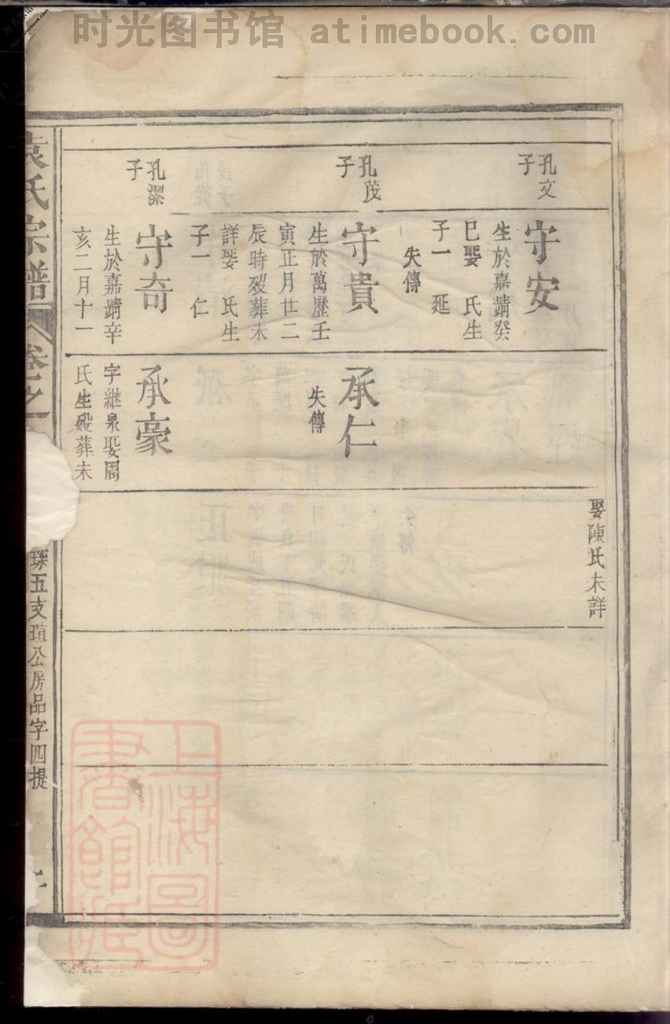 时光图书馆 atimebook.com
孔文
子
守安
生於嘉靖癸
巳娶 氏生
子一 延
失傳
孔茂
子
守貴
生於萬歷壬
寅正月廿二
辰時歿葬未
詳娶 氏生
子一 仁
孔潔
子
守奇
生於嘉靖辛
亥二月十一
承仁
失傳
承豪
字繼泉娶周
氏生歿葬未
娶陳氏未詳
袁氏宗譜
卷之
五支瑄公房品字四提
上海圖
書館藏